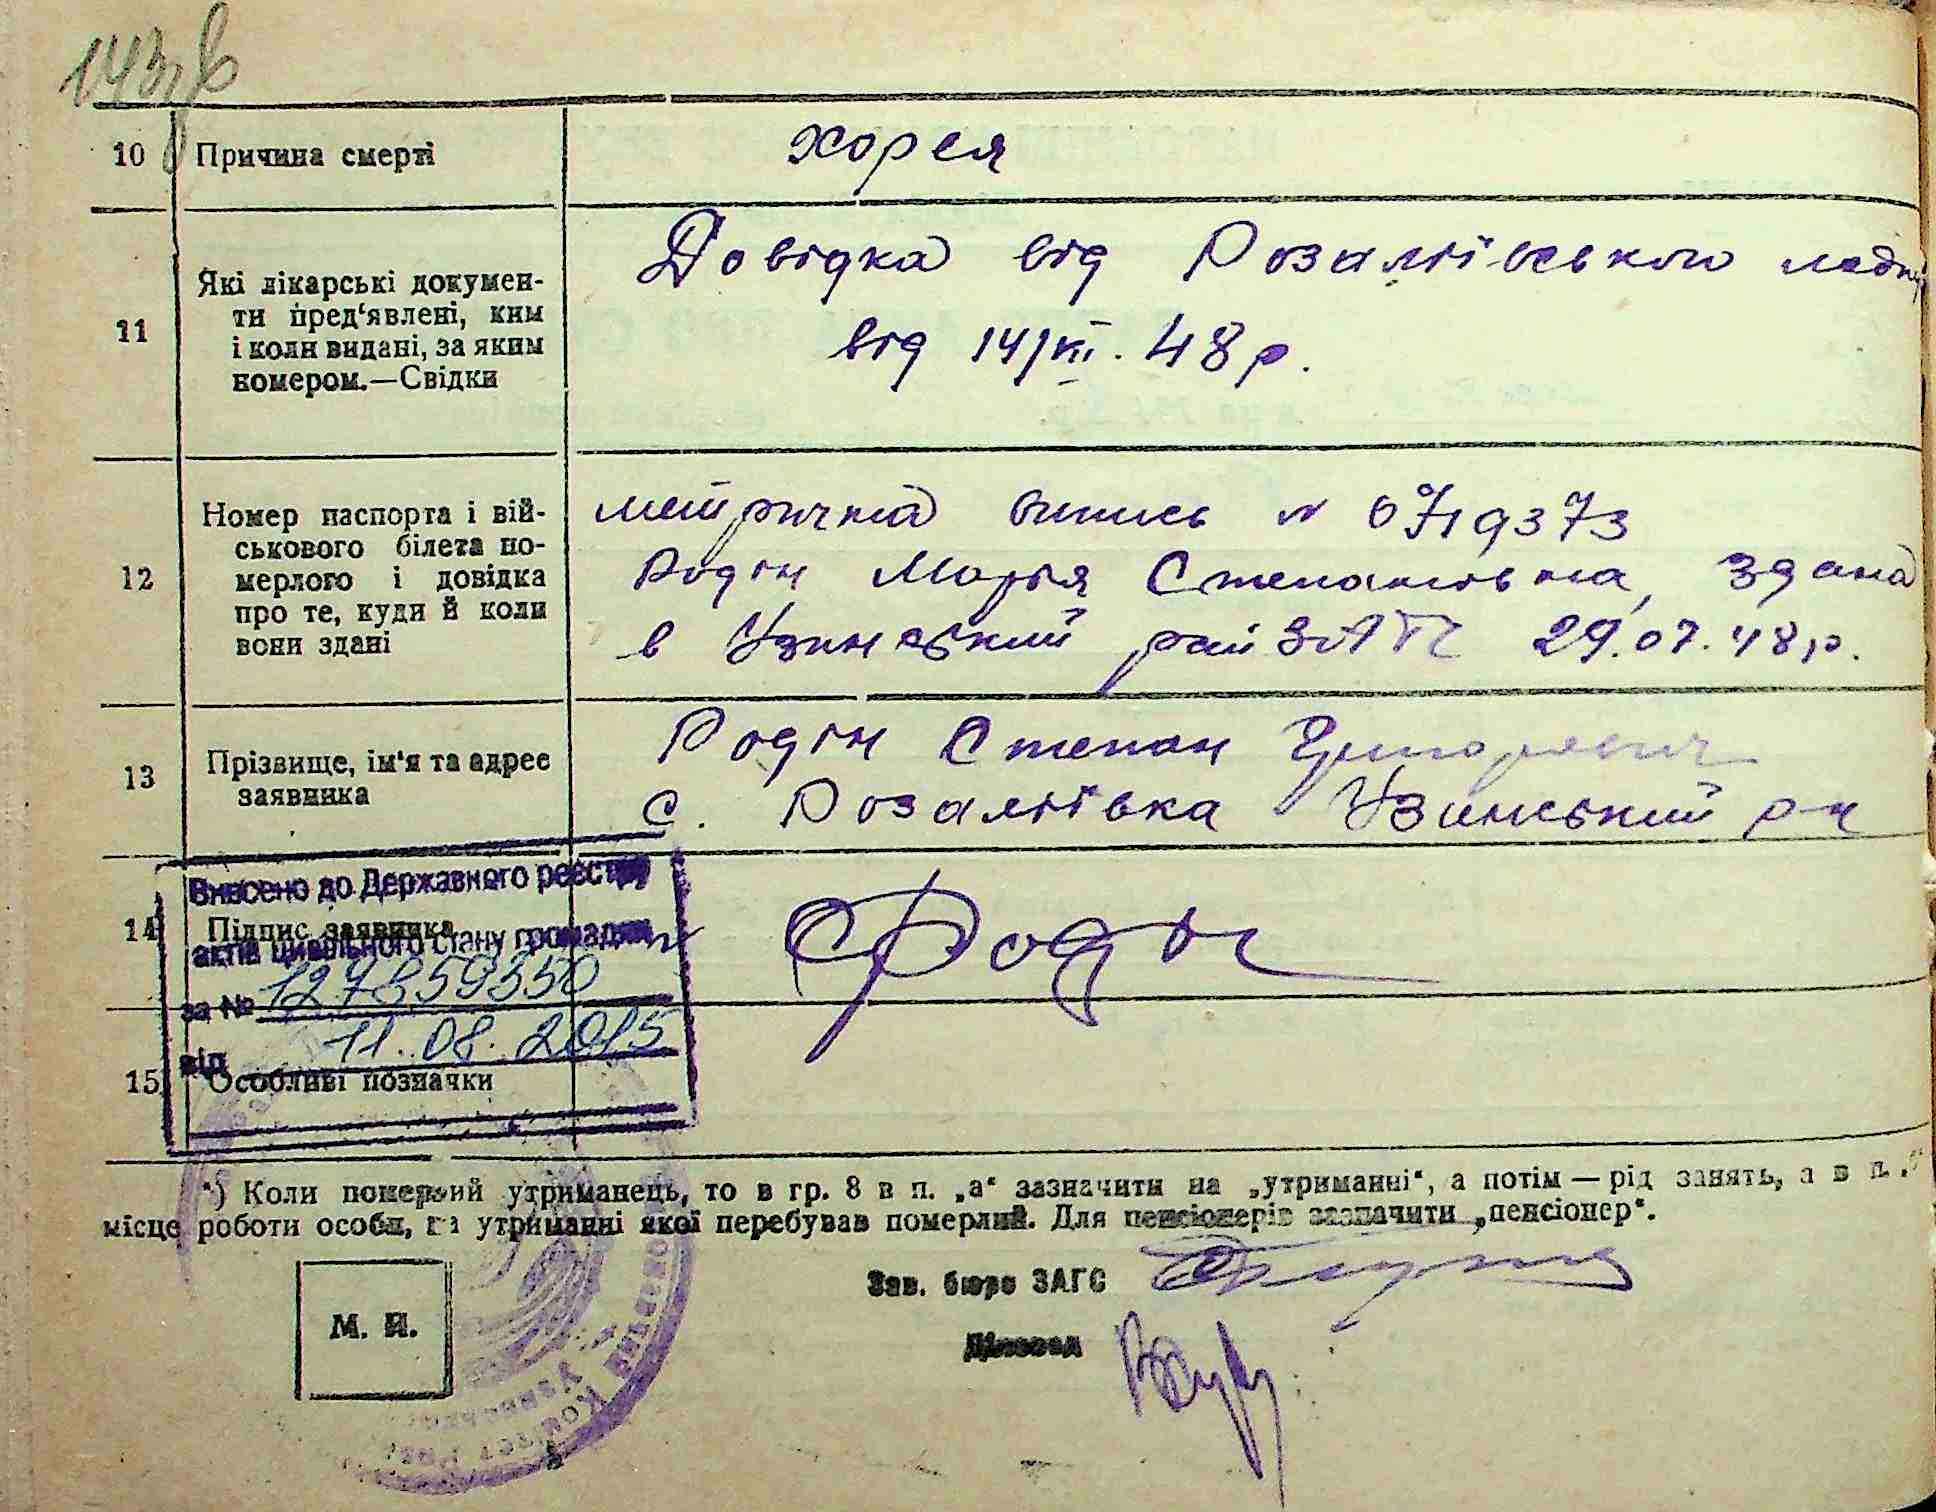 143
10 Причина смерті
хорея
11 Які лікарські докумен-
ти пред'явлені, ким
і коли видані, за яким
номером.—Свідки
Довідка від Розаліївського медп
від 14/VII. 48 р.
12 Номер паспорта і вій-
ськового білета по-
мерлого і довідка
про те, куди й коли
вони здані
метрична випись № 0719373
Родін Марія Степанівна, здана
в Узинський райЗАГС 29.07.48 р.
13 Прізвище, ім'я та адрес
заявника
Родін Степан Григорович
С. Розаліївка Узинський р-н
14 Підпис заявника
Родін
Внесено до Державного реєстру
актів цивільного стану громадян
за №
від 11.08.2015
15 Особливі позначки
*) Коли померлий утриманець, то в гр. 8 в п. „а“ зазначити на „утриманні“, а потім — рід занять, а в п.
місце роботи особи, на утриманні якої перебував померлий. Для пенсіонерів зазначити „пенсіонер“.
Зав. бюро ЗАГС
М. П.
Діловод